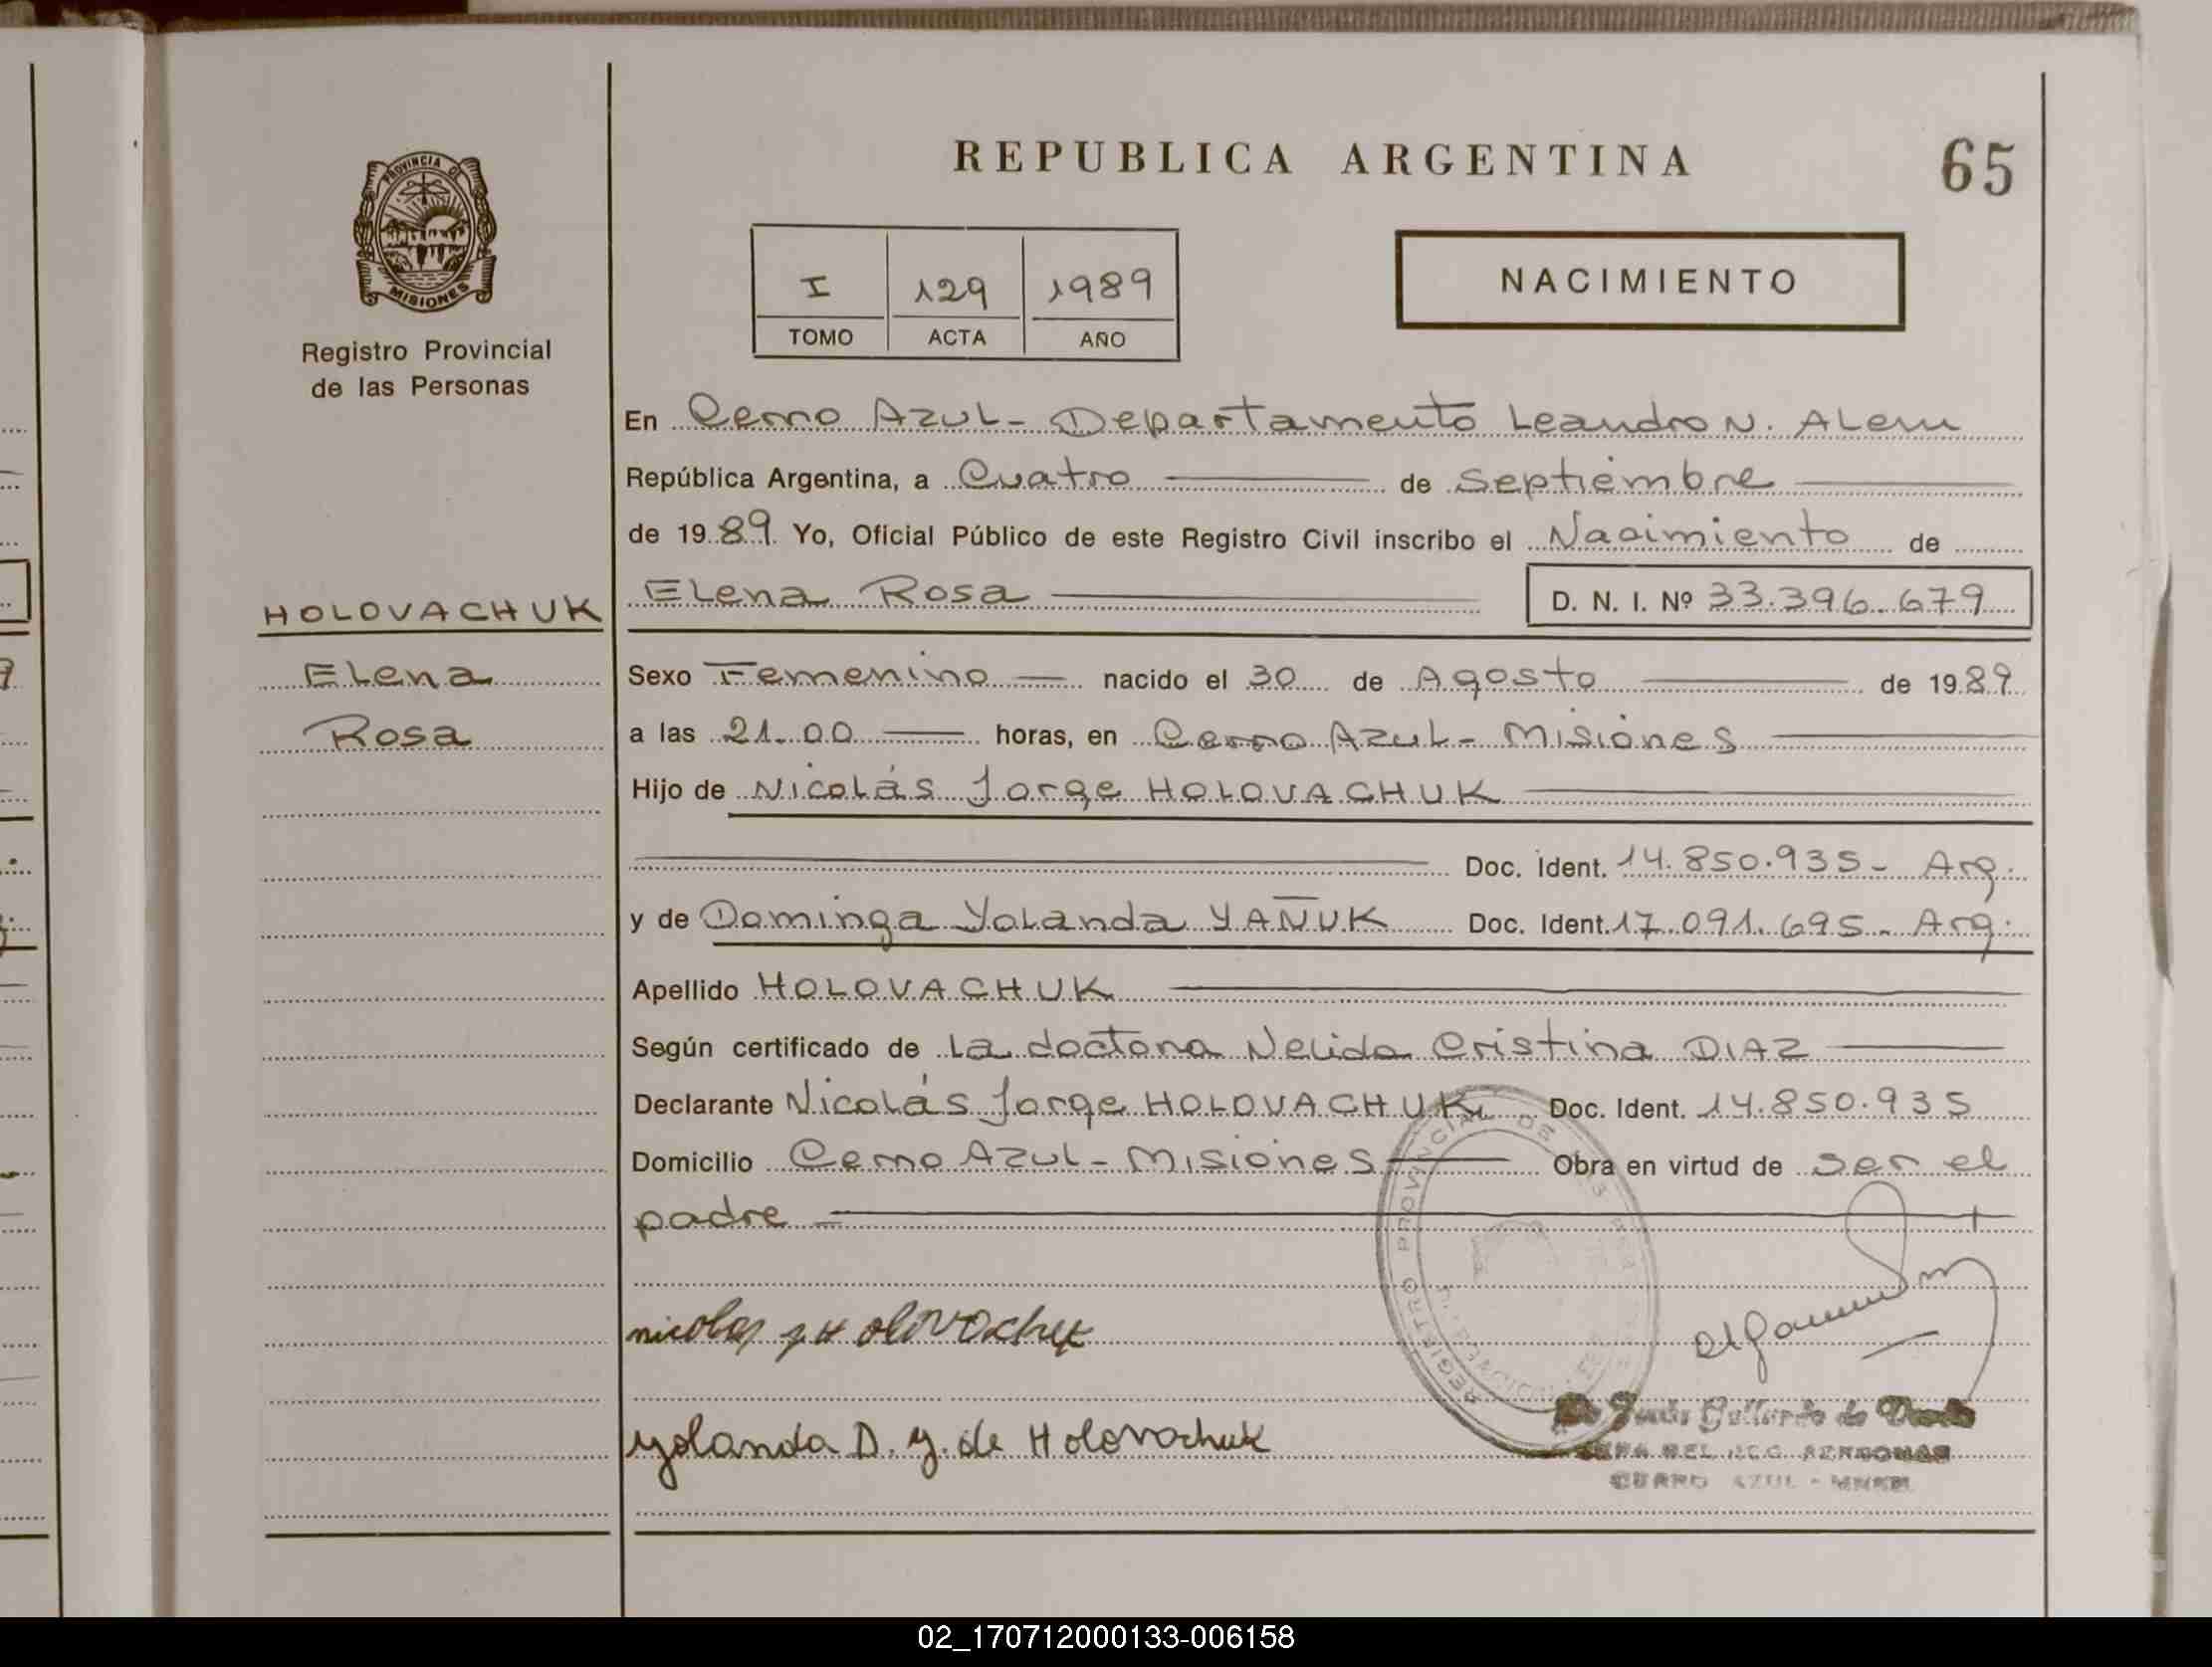 PROVINCIA DE
MISIONES
Registro Provincial
de las Personas
HOLOVACHUK
Elena
Rosa
REPUBLICA ARGENTINA
65
I 129 1989
TOMO ACTA AÑO
NACIMIENTO
En Cerro Azul - Departamento Leandro N. Alem
República Argentina, a Cuatro de Septiembre
de 1989 Yo, Oficial Público de este Registro Civil inscribo el Nacimiento de
Elena Rosa D. N. I. Nº 33.396.679
Sexo Femenino nacido el 30 de Agosto de 1989
a las 21.00 horas, en Cerro Azul - Misiones
Hijo de Nicolás Jorge HOLOVACHUK
Doc. Ident. 14.850.935 - Arg.
y de Dominga Yolanda YAÑUK Doc. Ident. 17.091.695 - Arg.
Apellido HOLOVACHUK
Según certificado de la doctora Nelida Cristina DIAZ
Declarante Nicolás Jorge HOLOVACHUK Doc. Ident. 14.850.935
Domicilio Cerro Azul - Misiones Obra en virtud de ser el
padre
REGISTRO PROVINCIAL DE
nicolas j H olovachuk
yolanda D. y. de Holovachuk
CERRO AZUL -
02_170712000133-006158